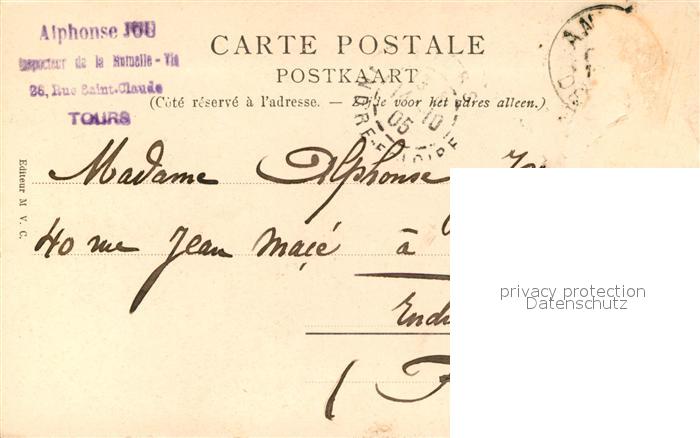 Alphonse JOU
Inspecteur de la Mutuelle-Vie
26, Rue Saint-Claude
TOURS
CARTE POSTALE
POSTKAART
(Côté réservé à l'adresse. — Zijde voor het adres alleen.)
10
05
Madame Alphonse
40 rue Jean Macé à
(
Editeur M. V. C.
privacy protection
Datenschutz